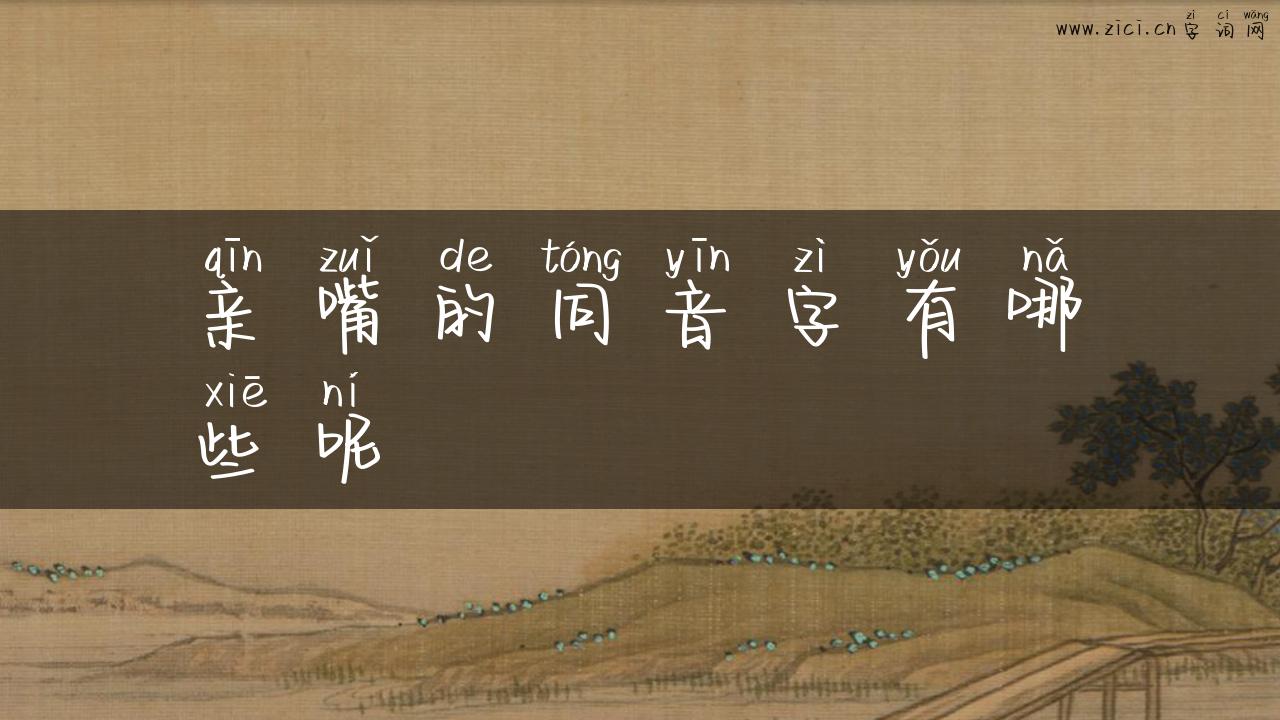 zì cí wǎng
www.zici.cn字词网
qīn zuǐ de tóng yīn zì yǒu nǎ
亲嘴的同音字有哪
xiē ní
些呢